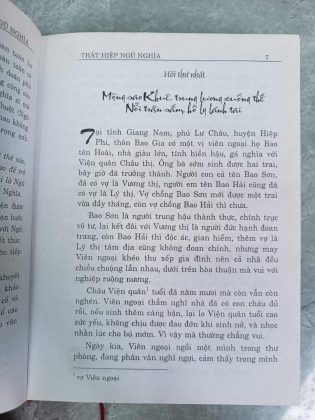 THẤT HIỆP NGŨ NGHĨA
7
Hồi thứ nhất
Mộng sao Khuê, trung lương xuống thế
Nổi trận sấm, hồ ly lánh tai
Tại tỉnh Giang Nam, phủ Lư Châu, huyện Hiệp
Phi, thôn Bao Gia có một vị viên ngoại họ Bao
tên Hoài, nhà giàu lớn, tính hiền hậu, gá nghĩa với
Viện quân Châu thị. Ông bà sớm sinh được hai trai,
bây giờ đã trưởng thành. Người con cả tên Bao Sơn,
đã có vợ là Vương thị, người em tên Bao Hải cũng đã
có vợ là Lý thị. Vợ chồng Bao Sơn mới được một trai
vừa đầy tháng, còn vợ chồng Bao Hải thì chưa.
Bao Sơn là người trung hậu thành thực, chính trực
vô tư, lại kết đôi với Vương thị là người đức hạnh đoan
trang, còn Bao Hải thì độc ác, gian hiểm, thêm vợ là
Lý thị tâm địa cũng không đoan chính, nhưng may
Viên ngoại khéo thu xếp gia đình nên cả nhà đều
chiều chuộng lẫn nhau, dưới trên hòa thuận mà vui với
nghiệp ruộng nương.
Châu Viện quân¹ tuổi đã năm mươi mà còn vẫn còn
nghén. Viên ngoại thầm nghĩ nhà đã có con cháu đủ
rồi, nếu sinh thêm càng bận, lại lo Viện quân tuổi cao
sức yếu, không chịu được đau đớn khi sinh nở, và nhọc
nhằn lúc cho bú mớm. Vì vậy mà thường chẳng vui.
Ngày kia, Viên ngoại ngồi một mình trong thư
phòng, đang phân vân nghĩ ngợi, cảm thấy trong mình
¹ vợ Viên ngoại